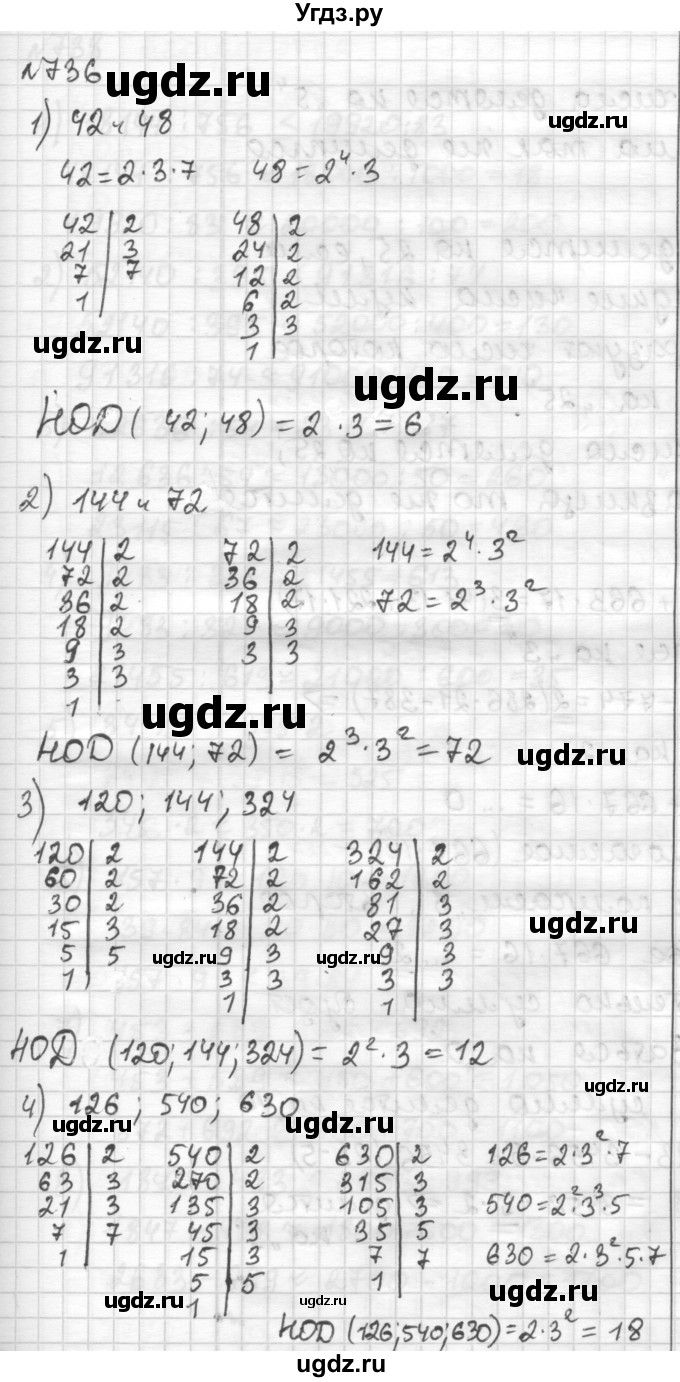 Угдз.ру
№736
ugdz.ru
1) 42 и 48
ugdz.ru
42=2·3·7 48=2⁴·3
42|2 48|2
21|3 24|2
7|7 12|2
1| 6|2
ugdz.ru
3|3
1|
ugdz.ru
НОД( 42; 48) = 2 · 3 = 6
2) 144 и 72
ugdz.ru
144|2 72|2 144=2⁴·3²
72|2 36|2 72=2³·3²
36|2 18|2
18|2 9|3
9|3 3|3
3|3
1
ugdz.ru
НОД (144; 72) = 2³·3² = 72
ugdz.ru
3) 120; 144; 324
120|2 144|2 324|2
60|2 72|2 162|2
30|2 36|2 81|3
15|3 18|2 27|3
ugdz.ru
5|5 9|3 9|3
ugdz.ru ugdz.ru
1| 3|3 3|3
1| 1|
НОД (120; 144; 324) = 2²·3 = 12
ugdz.ru
4) 126; 540; 630
ugdz.ru ugdz.ru
126|2 540|2 630|2 126=2·3²·7
63|3 270|2 315|3
21|3 135|3 105|3 540=2²·3³·5
7|7 45|3 35|5
1| 15|3 7|7 630=2·3²·5·7
5|5 1|
ugdz.ru ugdz.ru ugdz.ru
1
НОД (126; 540; 630) = 2·3² = 18
ugdz.ru